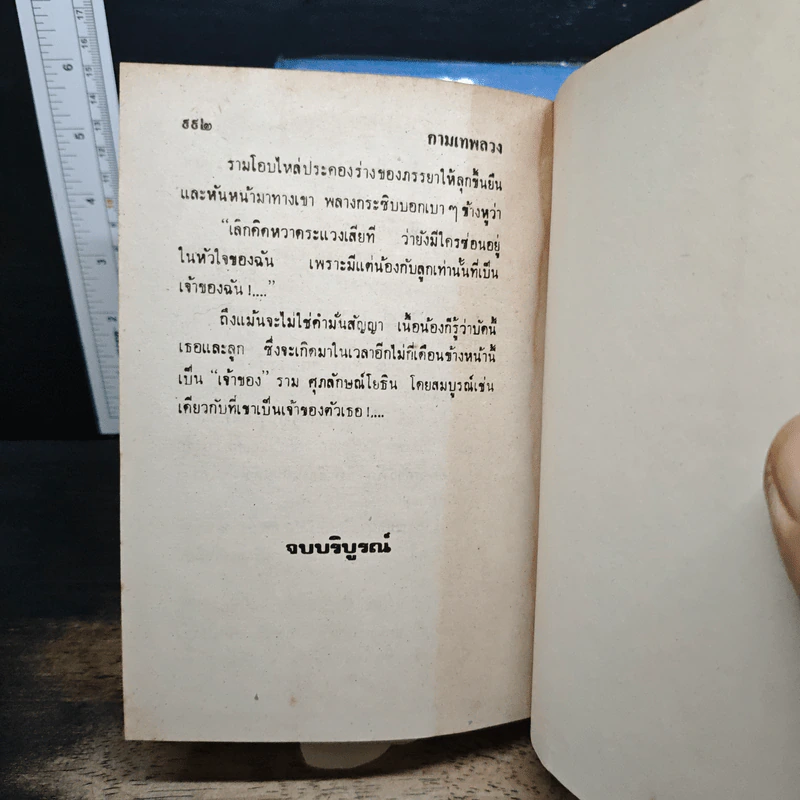 ๕๕๒
กามเทพลวง
รามโอบไหล่ประคองร่างของภรรยาให้ลุกขึ้นยืน
และหันหน้ามาทางเขา พลางกระซิบบอกเบา ๆ ข้างหูว่า
“เลิกคิดหวาดระแวงเสียที ว่ายังมีใครซ่อนอยู่
ในหัวใจของฉัน เพราะมีแต่น้องกับลูกเท่านั้นที่เป็น
เจ้าของฉัน !....”
ถึงแม้นจะไม่ใช่คำมั่นสัญญา เนื้อน้องก็รู้ว่าบัดนี้
เธอและลูก ซึ่งจะเกิดมาในเวลาอีกไม่กี่เดือนข้างหน้านี้
เป็น “เจ้าของ” ราม ศุภลักษณ์โยธิน โดยสมบูรณ์เช่น
เดียวกับที่เขาเป็นเจ้าของตัวเธอ !....
จบบริบูรณ์
6
5
4
3
2
17
16
15
14
13
12
11
10
9
8
7